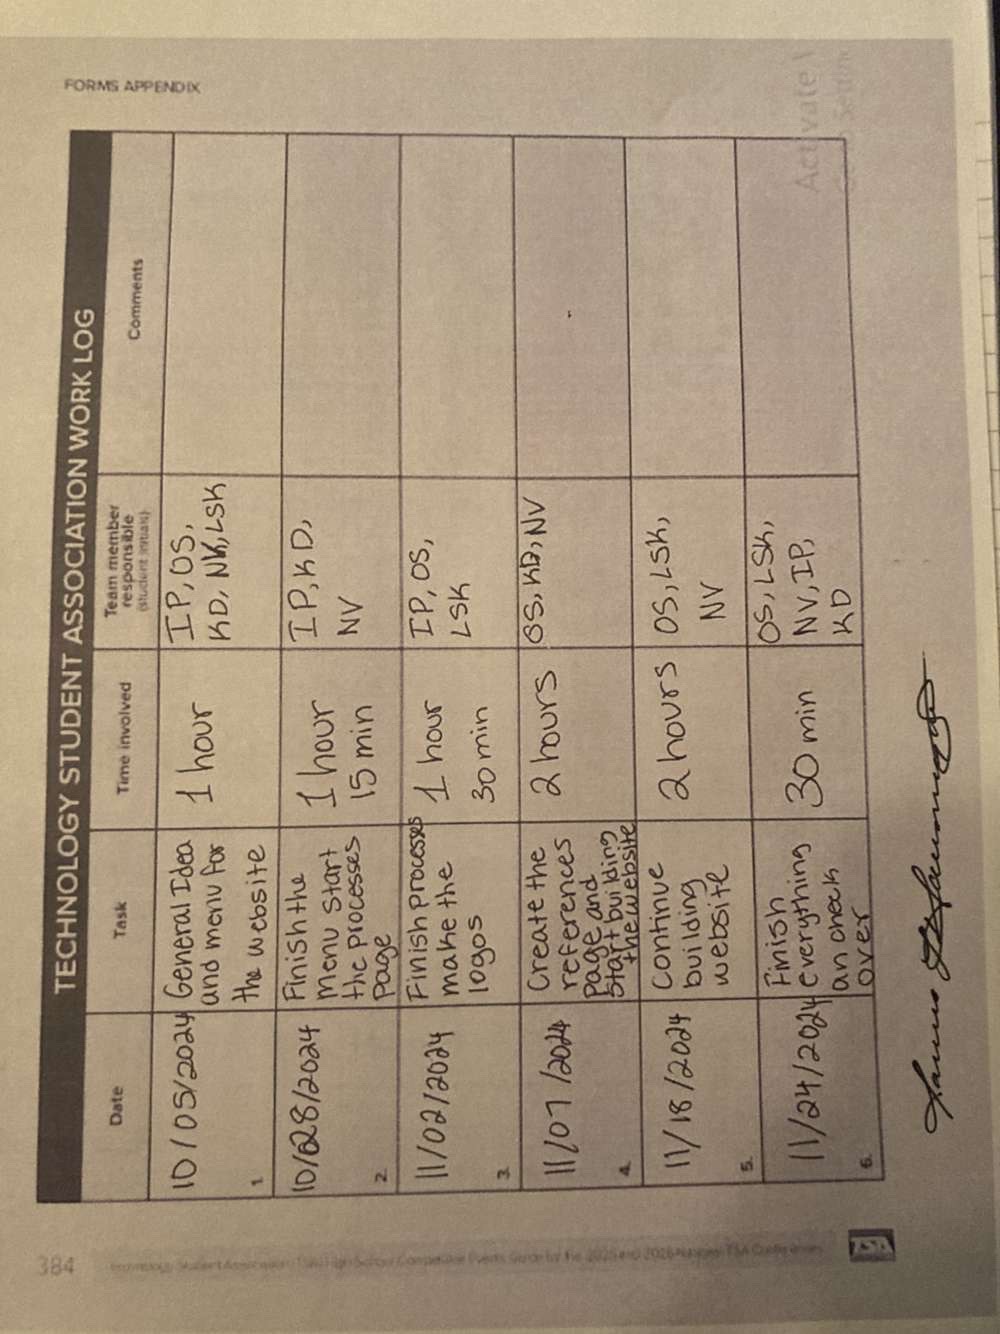 FORMS APPENDIX
TECHNOLOGY STUDENT ASSOCIATION WORK LOG
Date
Task
Time involved
Team member
responsible
(student initials)
Comments
1.
10/05/2024
General Idea
and menu for
the website
1 hour
IP, OS,
KD, NV, LSK
2.
10/28/2024
Finish the
menu start
the processes
page
1 hour
15 min
IP, KD,
NV
3.
11/02/2024
Finish processes
make the
logos
1 hour
30 min
IP, OS,
LSK
4.
11/07/2024
Create the
references
page and
start building
the website
2 hours
OS, KD, NV
5.
11/18/2024
continue
building
website
2 hours
OS, LSK,
NV
6.
11/24/2024
Finish
everything
an check
over
30 min
OS, LSK,
NV, IP,
KD
Activate
384
Technology Student Association TSA High School Competitive Events Guide for the 2025 and 2026 National TSA Conferences
TSA